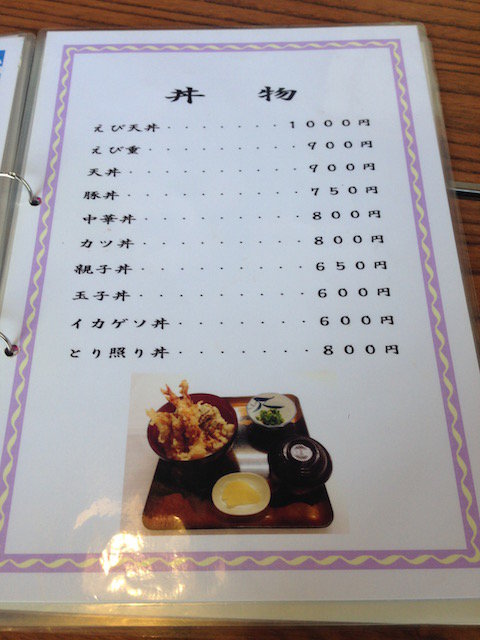 丼 物
えび天丼・・・・・・・１０００円
えび重・・・・・・・・・９００円
天丼・・・・・・・・・・９００円
豚丼・・・・・・・・・・７５０円
中華丼・・・・・・・・・８００円
カツ丼・・・・・・・・・８００円
親子丼・・・・・・・・・６５０円
玉子丼・・・・・・・・・６００円
イカゲソ丼・・・・・・・６００円
とり照り丼・・・・・・・８００円